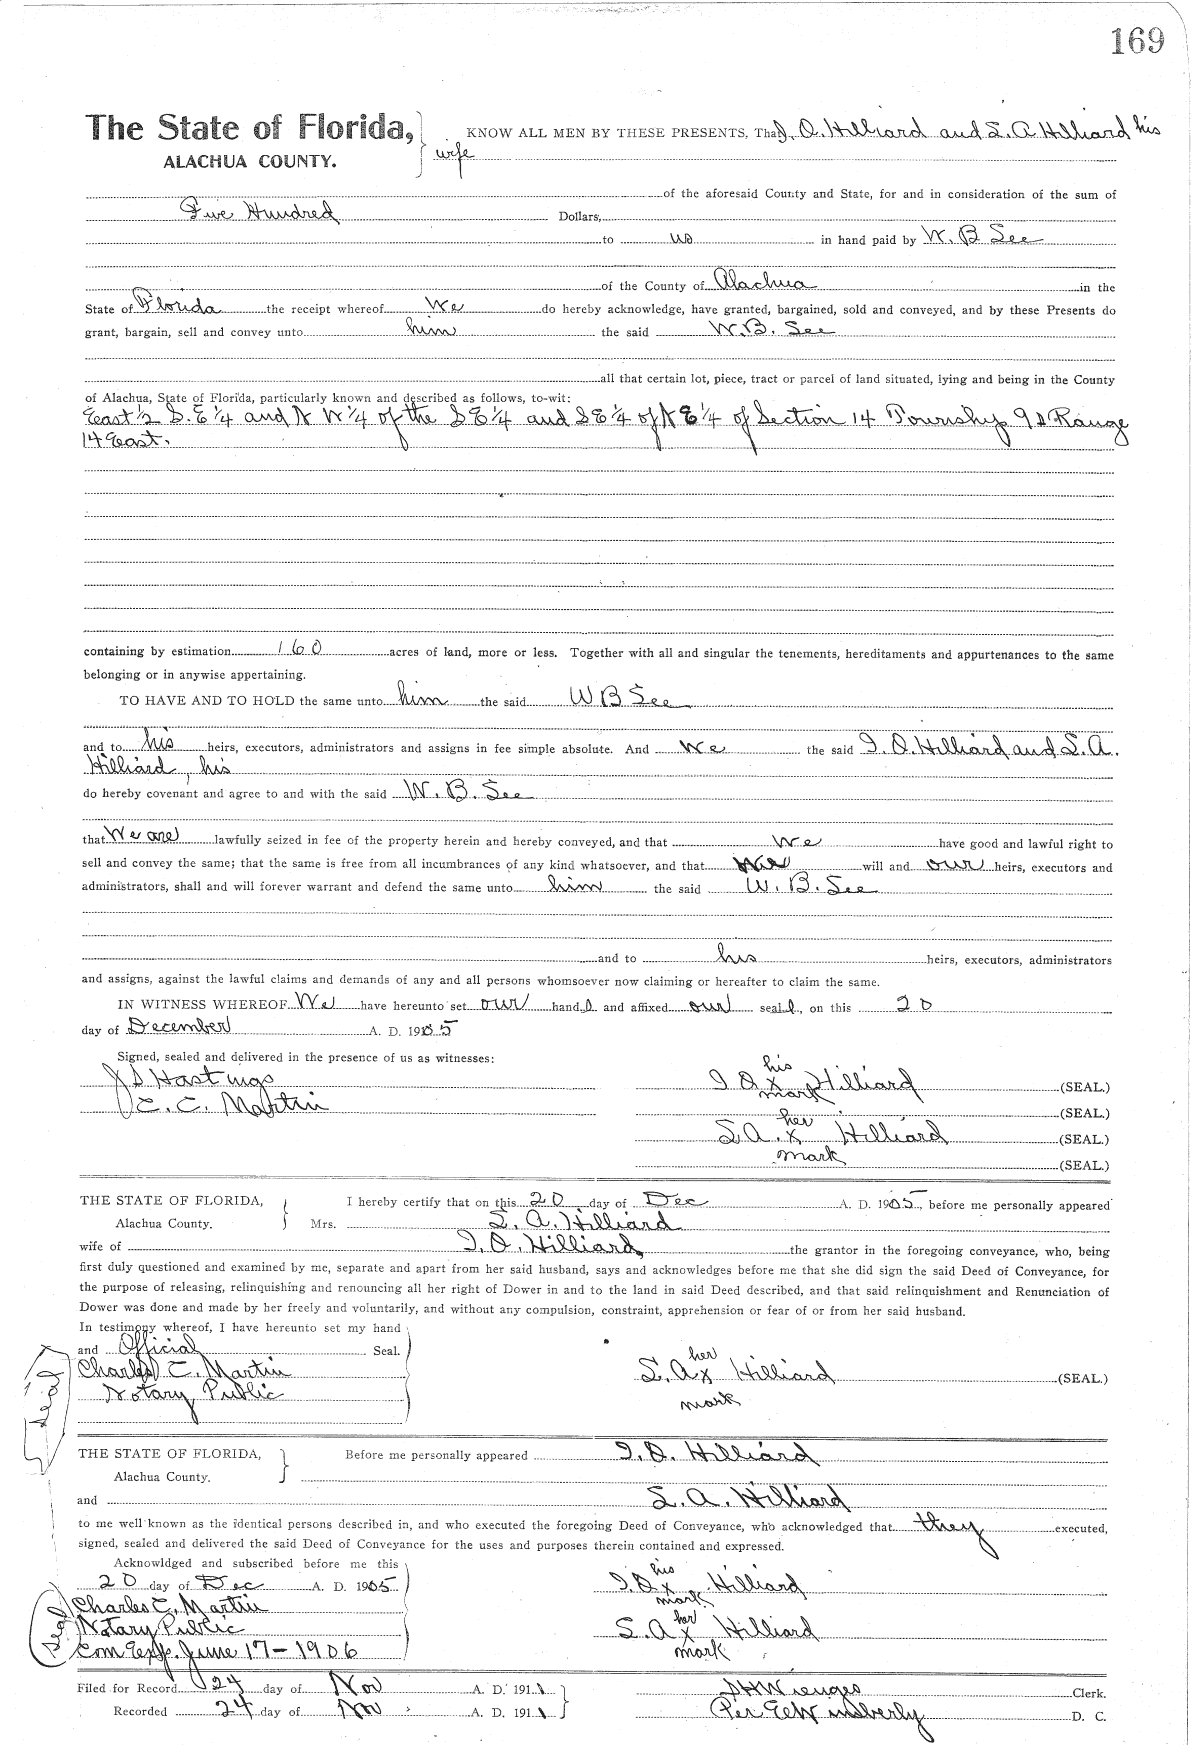 169
The State of Florida, KNOW ALL MEN BY THESE PRESENTS, That J. O. Hilliard and S. A Hilliard his
ALACHUA COUNTY. wife
of the aforesaid County and State, for and in consideration of the sum of
Five Hundred Dollars,
to us in hand paid by W. B See
of the County of Alachua in the
State of Florida the receipt whereof We do hereby acknowledge, have granted, bargained, sold and conveyed, and by these Presents do
grant, bargain, sell and convey unto him the said W. B. See
all that certain lot, piece, tract or parcel of land situated, lying and being in the County
of Alachua, State of Florida, particularly known and described as follows, to-wit:
East 1/2 S. E 1/4 and N W 1/4 of the S E 1/4 and S E 1/4 of N E 1/4 of Section 14 Township 9 S Range
14 East.
containing by estimation 160 acres of land, more or less. Together with all and singular the tenements, hereditaments and appurtenances to the same
belonging or in anywise appertaining.
TO HAVE AND TO HOLD the same unto him the said W B See
and to his heirs, executors, administrators and assigns in fee simple absolute. And We the said J. O. Hilliard and S. A.
Hilliard, his
do hereby covenant and agree to and with the said W. B. See
that We are lawfully seized in fee of the property herein and hereby conveyed, and that We have good and lawful right to
sell and convey the same; that the same is free from all incumbrances of any kind whatsoever, and that we will and our heirs, executors and
administrators, shall and will forever warrant and defend the same unto him the said W. B. See
and to his heirs, executors, administrators
and assigns, against the lawful claims and demands of any and all persons whomsoever now claiming or hereafter to claim the same.
IN WITNESS WHEREOF We have hereunto set our hands and affixed our seals, on this 20
day of December A. D. 1905
Signed, sealed and delivered in the presence of us as witnesses:
J S Hastings
C. C. Martin
his
J O x Hilliard (SEAL.)
mark
(SEAL.)
her
S. A. x Hilliard (SEAL.)
mark
(SEAL.)
THE STATE OF FLORIDA, I hereby certify that on this 20 day of Dec A. D. 1905, before me personally appeared
Alachua County. Mrs. S. A. Hilliard
wife of J. O. Hilliard, the grantor in the foregoing conveyance, who, being
first duly questioned and examined by me, separate and apart from her said husband, says and acknowledges before me that she did sign the said Deed of Conveyance, for
the purpose of releasing, relinquishing and renouncing all her right of Dower in and to the land in said Deed described, and that said relinquishment and Renunciation of
Dower was done and made by her freely and voluntarily, and without any compulsion, constraint, apprehension or fear of or from her said husband.
In testimony whereof, I have hereunto set my hand
and Official Seal.
Seal
Charles C. Martin
Notary Public
her
S. A x Hilliard (SEAL.)
mark
THE STATE OF FLORIDA, Before me personally appeared J. O. Hilliard
Alachua County.
and S. A. Hilliard
to me well known as the identical persons described in, and who executed the foregoing Deed of Conveyance, who acknowledged that they executed,
signed, sealed and delivered the said Deed of Conveyance for the uses and purposes therein contained and expressed.
Acknowldged and subscribed before me this
20 day of Dec A. D. 1905
Seal
Charles C. Martin
Notary Public
Com Exp. June 17 - 1906
his
J. O x Hilliard
mark
her
S. A x Hilliard
mark
Filed for Record 24 day of Nov A. D. 1911 S H Wienges Clerk.
Recorded 24 day of Nov A. D. 1911 Per E W D. C.